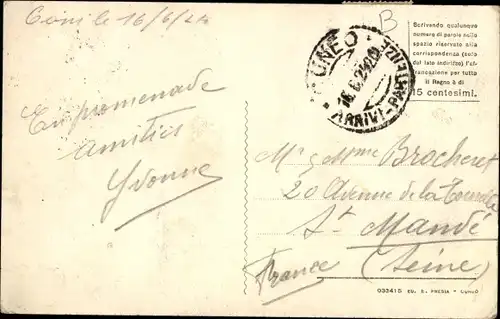 Coni le 16/6/24
En promenade
amitiés
Yvonne
CUNEO
16.6.24
ARRIVI-PARTENZE
B
Scrivendo qualunque
numero di parole nello
spazio riservato alla
corrispondenza (sulla
del lato indirizzo) l'af-
francazione per tutto
il Regno è di
15 centesimi.
Mr & Mme Brocheret
20 Avenue de la Tourelle
St Mandé
(Seine)
France
033415 ED. S. PRESIA - CUNEO